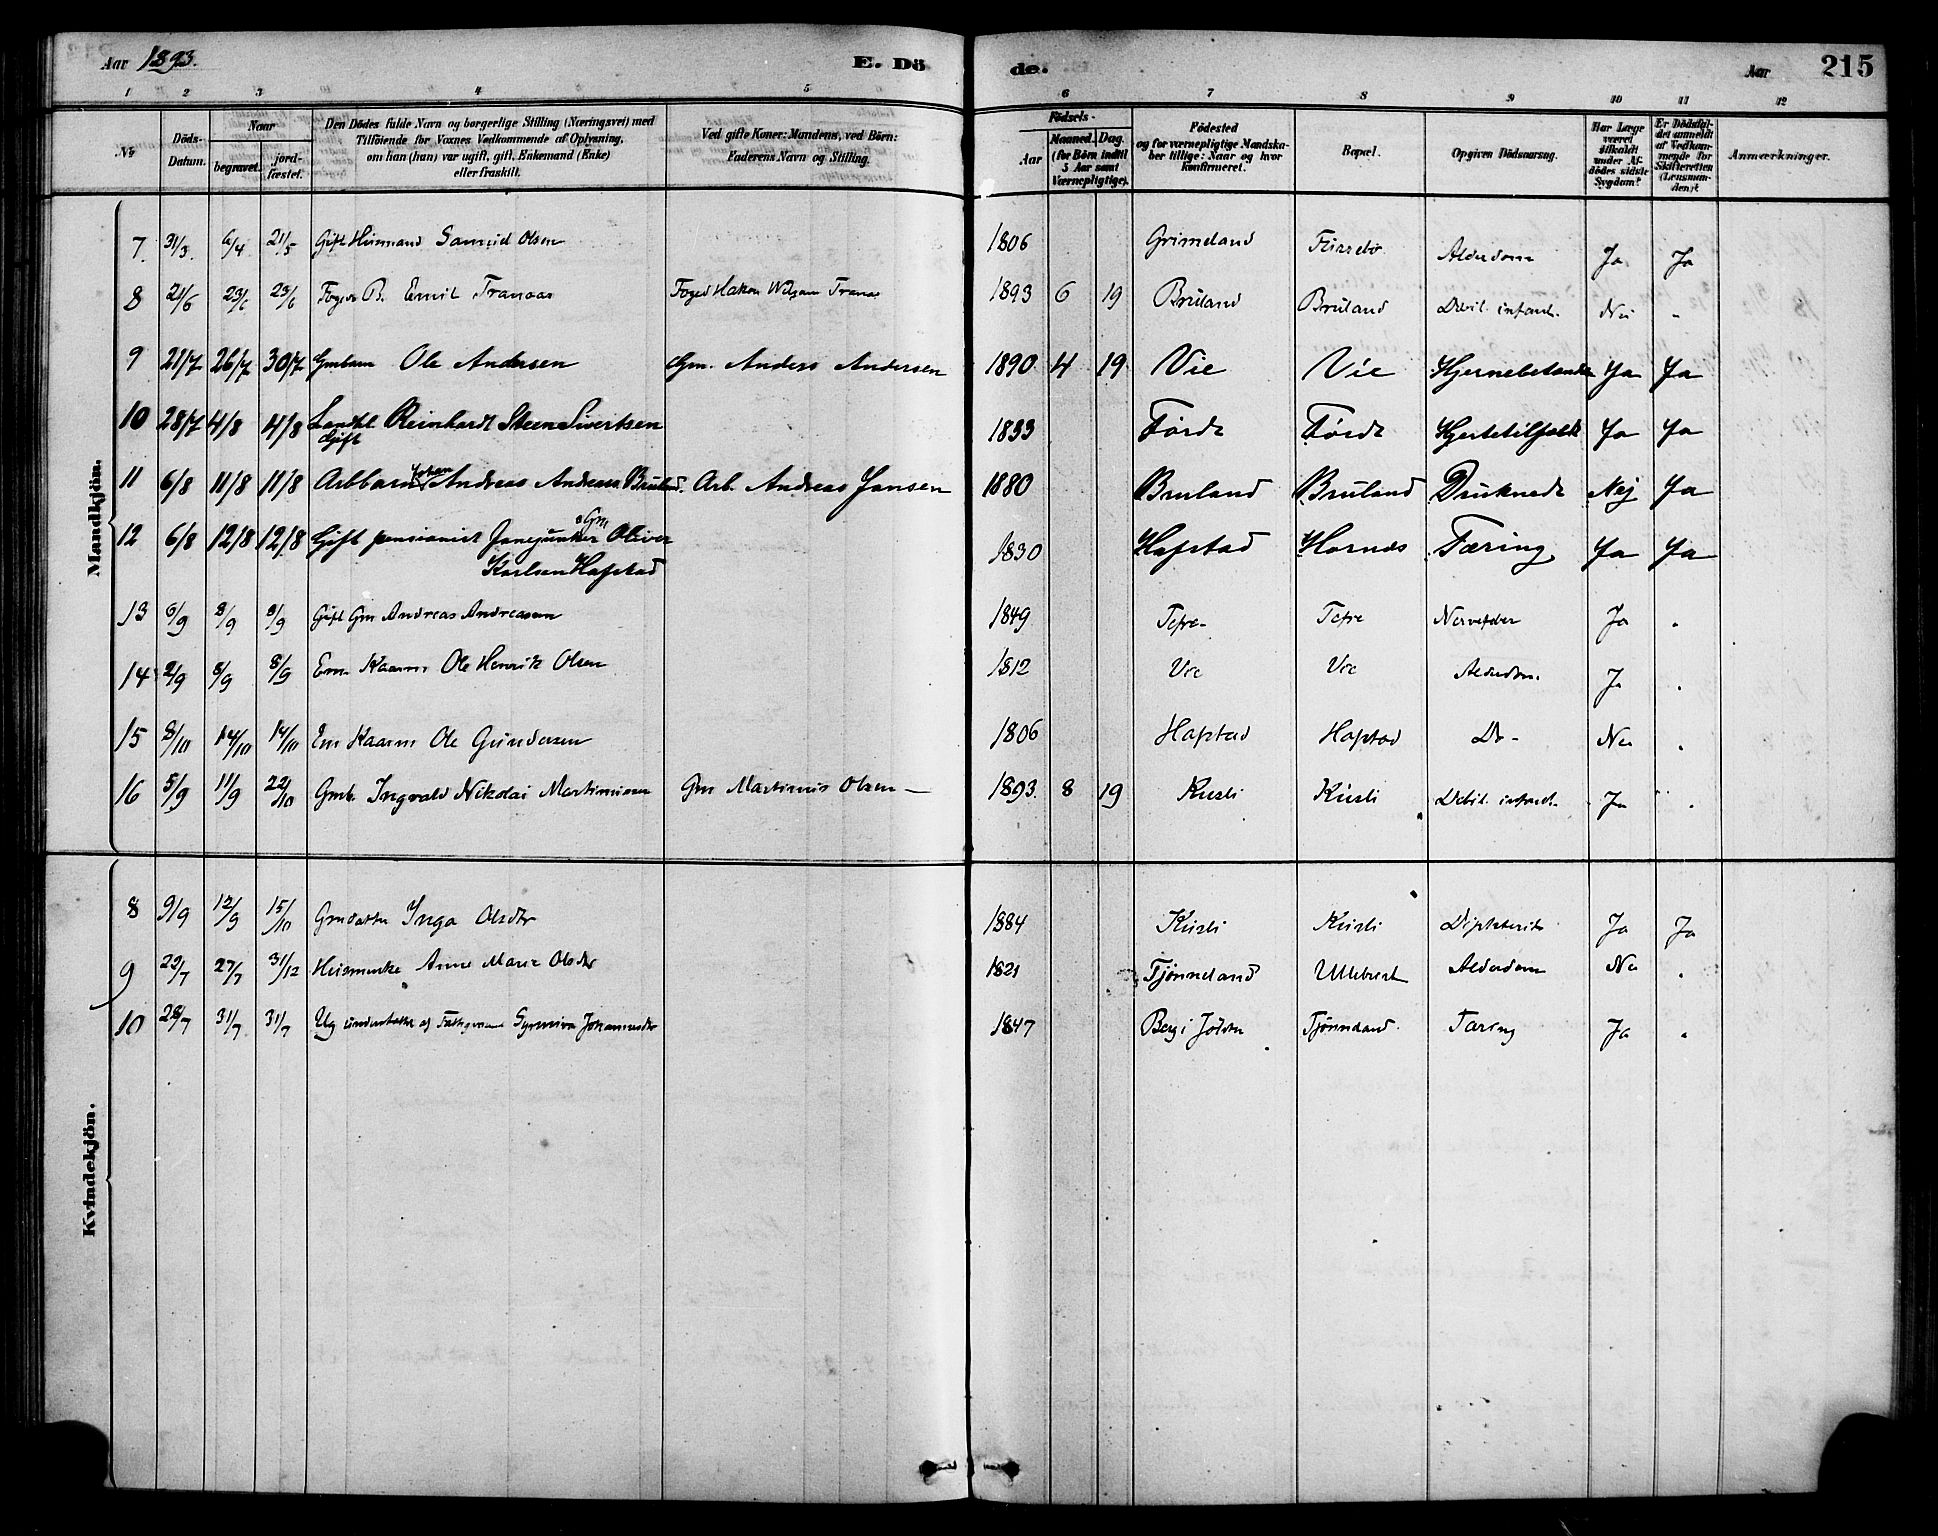 Aar 1893. E. Dö
de. Aar 215
1 2 3 4 5
6 7 8 9 10 11 12
№ Döds-Datum. Naar begravet. jordfæstet. Den Dödes fulde Navn og borgerlige Stilling (Næringsvei) med Tilföiende for Voxnes Vedkommende af Oplysning, om han (hun) var ugift, gift, Enkemand (Enke) eller fraskilt. Ved gifte Koner: Mandens, ved Börn: Faderens Navn og Stilling.
Födsels- Aar Maaned. Dag. (for Börn indtil 5 Aar samt Værnepligtige). Födested og for værnepligtige Mandskaber tillige: Naar og hvor konfirmeret. Bopæl. Opgiven Dödsaarsag. Har Læge været tilkaldt under Afdödes sidste Sygdom? Er Dödsfaldet anmeldt af Vedkommende for Skifteretten (Lensmanden)? Anmærkninger.
Mandkjön.
7. 31/3. 6/4 21/5 Gift Husmand Samuel Olsen 1806 Grimeland Alderdom Ja Ja
8 21/6 23/6 23/6 Fogds B. Emil Tranaas Foged Hakon Tranaas 1893 6 19 Bruland Bruland Debil. infant. Nei "
9 21/7 26/7 30/7 Gmbarn Ole Andersen Gm. Anders Andersen 1890 4 19 Vie Vie Hjernebetændelse Ja Ja
10 28/7 4/8 4/8 Landhl Reinhardt Steen Sivertsen
Gift 1833 Førde Førde Hjertetilfælde Ja Ja
11 6/8 11/8 11/8 Arbbarn Johan Andreas Andreasen Bruland. Arb. Andreas Jansen 1880 Bruland Bruland Druknede Nej Ja
12 6/8 12/8 12/8 Gift pensionist Fanejunker o Gm Oliver
Karlsen Hafstad 1830 Hafstad Hornes Tæring. Ja Ja
13 6/9 8/9 8/9 Gift Gm Andreas Andreasen 1849 Tefre Tefre Nervefeber Ja "
14 2/9 8/9 8/9 Em. Kaarm Ole Henrik Olsen 1812 Vie Vie Alderdom. Ja "
15 8/10 14/10 14/10 Em Kaarm Ole Gundersen 1806 Hafstad Hafstad Do - Nei "
16 5/9 11/9 22/10 Gmb. Ingvald Nikolai Martinusen Gm Martinus Olsen — 1893. 8 19 Kusli Kusli Debil. infant. Ja "
Kvindekjön.
8 9/9 12/9 15/10 Gmdatter Inga Olsdtr 1884 Kusli Kusli Diphterit Ja Ja
9 22/7 27/7 31/12 Husmenke Anne Marie Olsdtr 1821 Tjønneland Ullebust Alderdom Nei "
10 28/7 31/7 31/7 Ug understøttet af Fattigvæsenet Synneva Johannesdtr 1847 Berg i Jølster Tjønneland Tæring Ja "